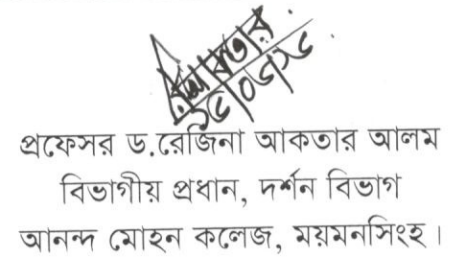 প্রফেসর ড.রেজিনা আকতার আলম
বিভাগীয় প্রধান, দর্শন বিভাগ
আনন্দ মোহন কলেজ, ময়মনসিংহ।